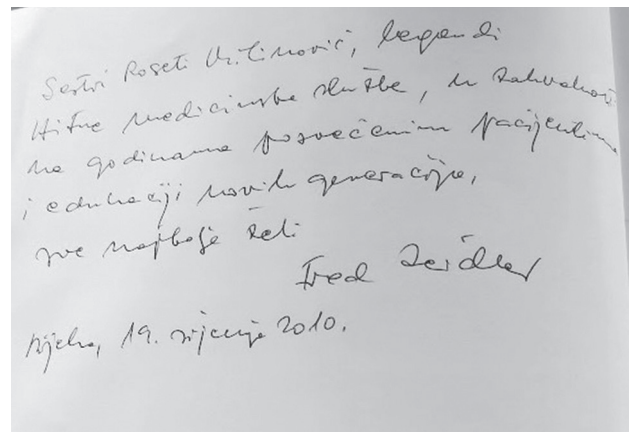 Sestri Roseti Vičinović, legendi
Hitne medicinske službe, u zahvalnost
na godinama posvećenim pacijentima
i edukaciji novih generacija,
sve najbolje želi
Fred Zeidler
Rijeka, 19. siječnja 2010.